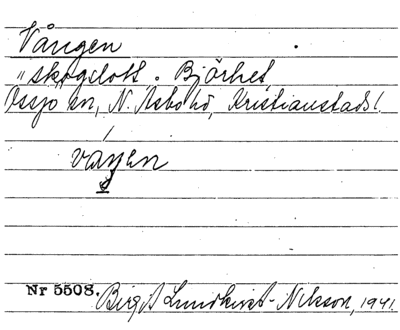 Vången
"skogslott. Björhet,
Össjö sn, N. Åsbo hd, Kristianstads l.
Nr 5508. Birgit Lundkvist-Nilsson, 1941.